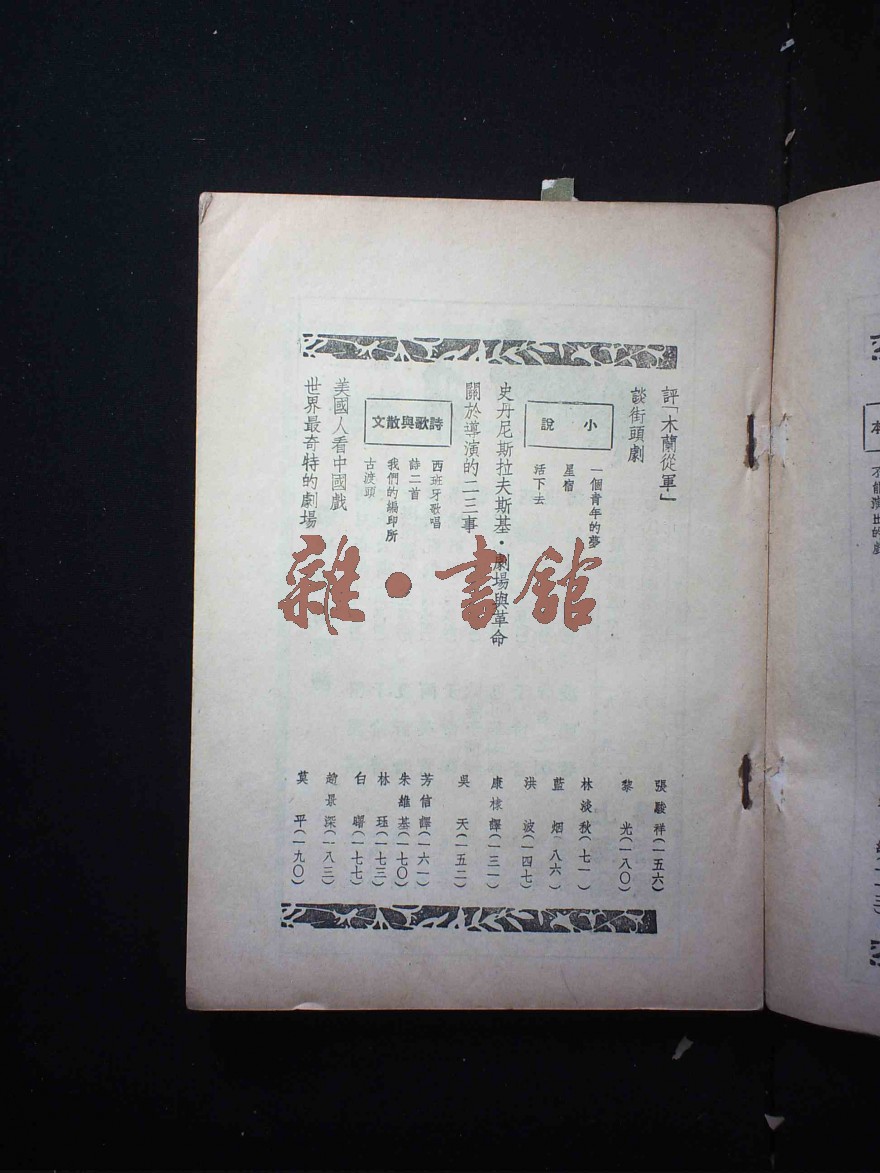 評「木蘭從軍」
張駿祥(一五六)
談街頭劇
黎光(一八〇)
小說
一個青年的夢
林淡秋(七一)
星宿
藍烟(八六)
活下去
洪波(一四七)
史丹尼斯拉夫斯基·劇場與革命
康棣譯(一三一)
關於導演的二三事
吳天(一五二)
詩歌與散文
西班牙歌唱
芳信譯(一六一)
詩二首
朱維基(一七〇)
我們的編印所
林珏(一七三)
古渡頭
白曙(一七七)
美國人看中國戲
趙景深(一八三)
世界最奇特的劇場
莫平(一九〇)
雜·書館
不能演出的戲